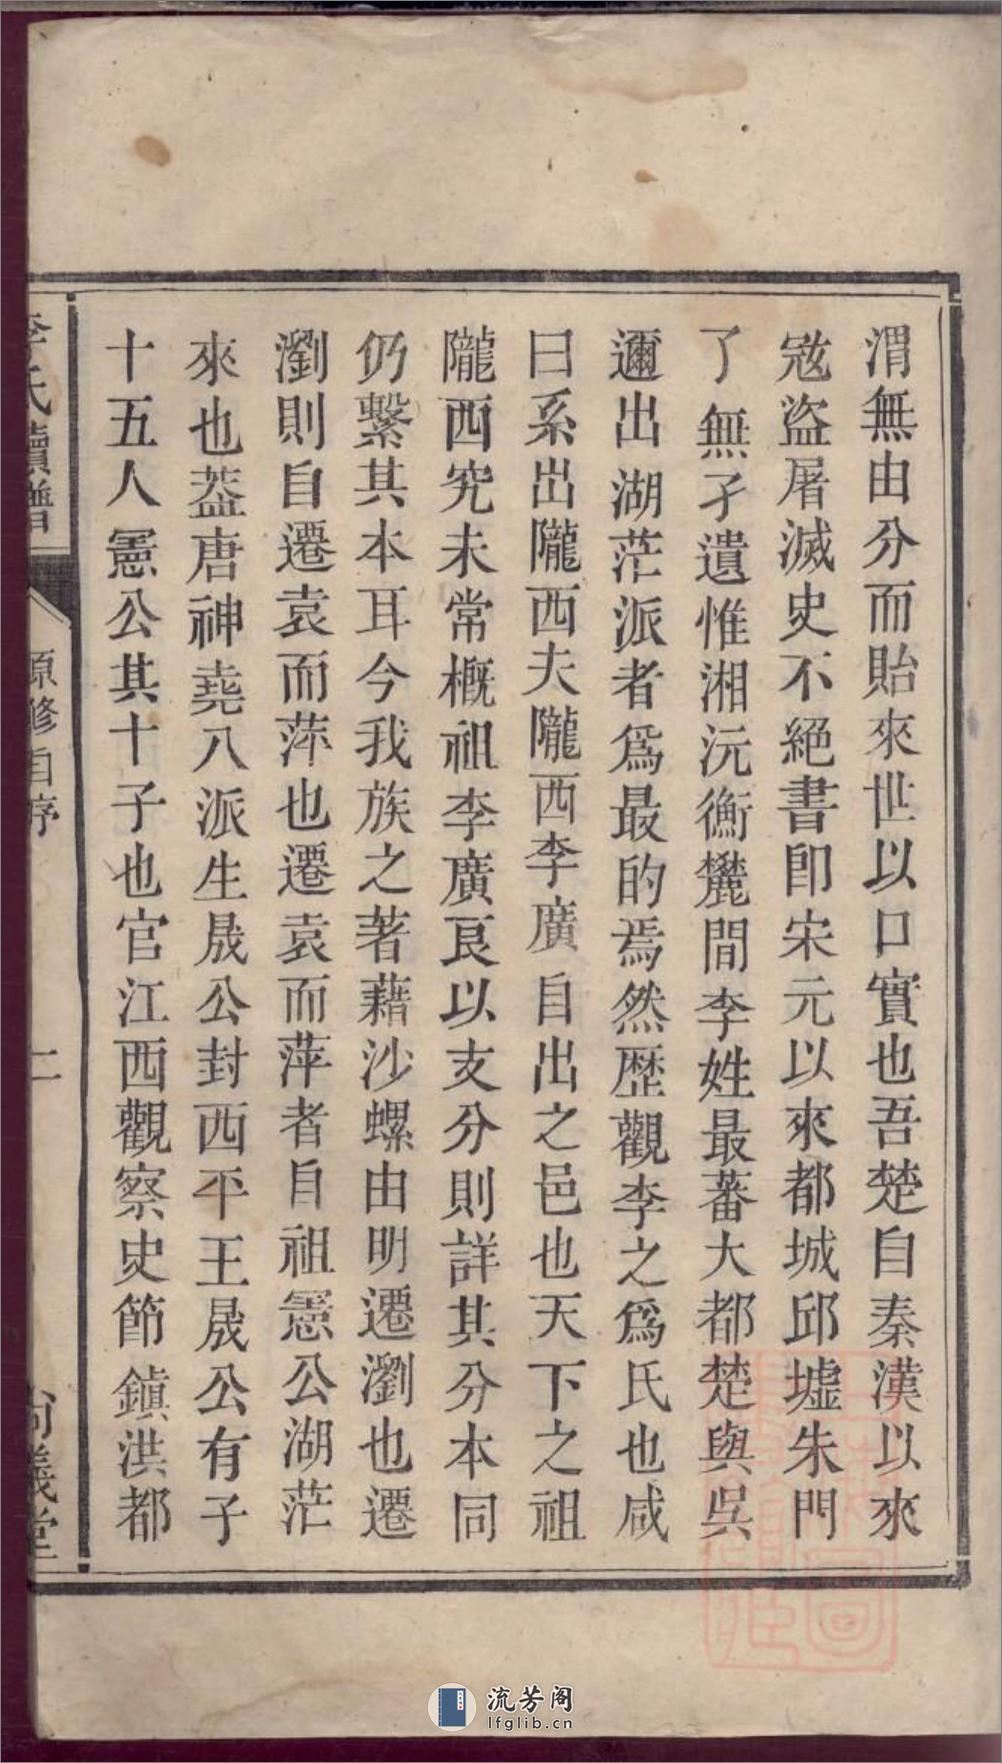 渭無由分而貽來世以口實也吾楚自秦漢以來
寇盜屠滅史不絕書卽宋元以來都城邱墟朱門
了無孑遺惟湘沅衡麓間李姓最蕃大都楚與吳
邇出湖茫派者爲最的焉然歷觀李之爲氏也咸
曰系出隴西夫隴西李廣自出之邑也天下之祖
隴西究未常概祖李廣良以支分則詳其分本同
仍繫其本耳今我族之著藉沙螺由明遷瀏也遷
瀏則自遷袁而萍也遷袁而萍者自祖憲公湖茫
來也葢唐神堯八派生晟公封西平王晟公有子
十五人憲公其十子也官江西觀察史節鎮洪都
李氏續譜
原修自序
二
尚義堂
流芳阁
lfglib.cn